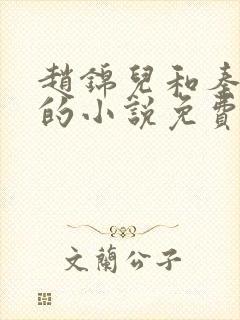 趙錦兒和秦
的小說免費
文蘭公子